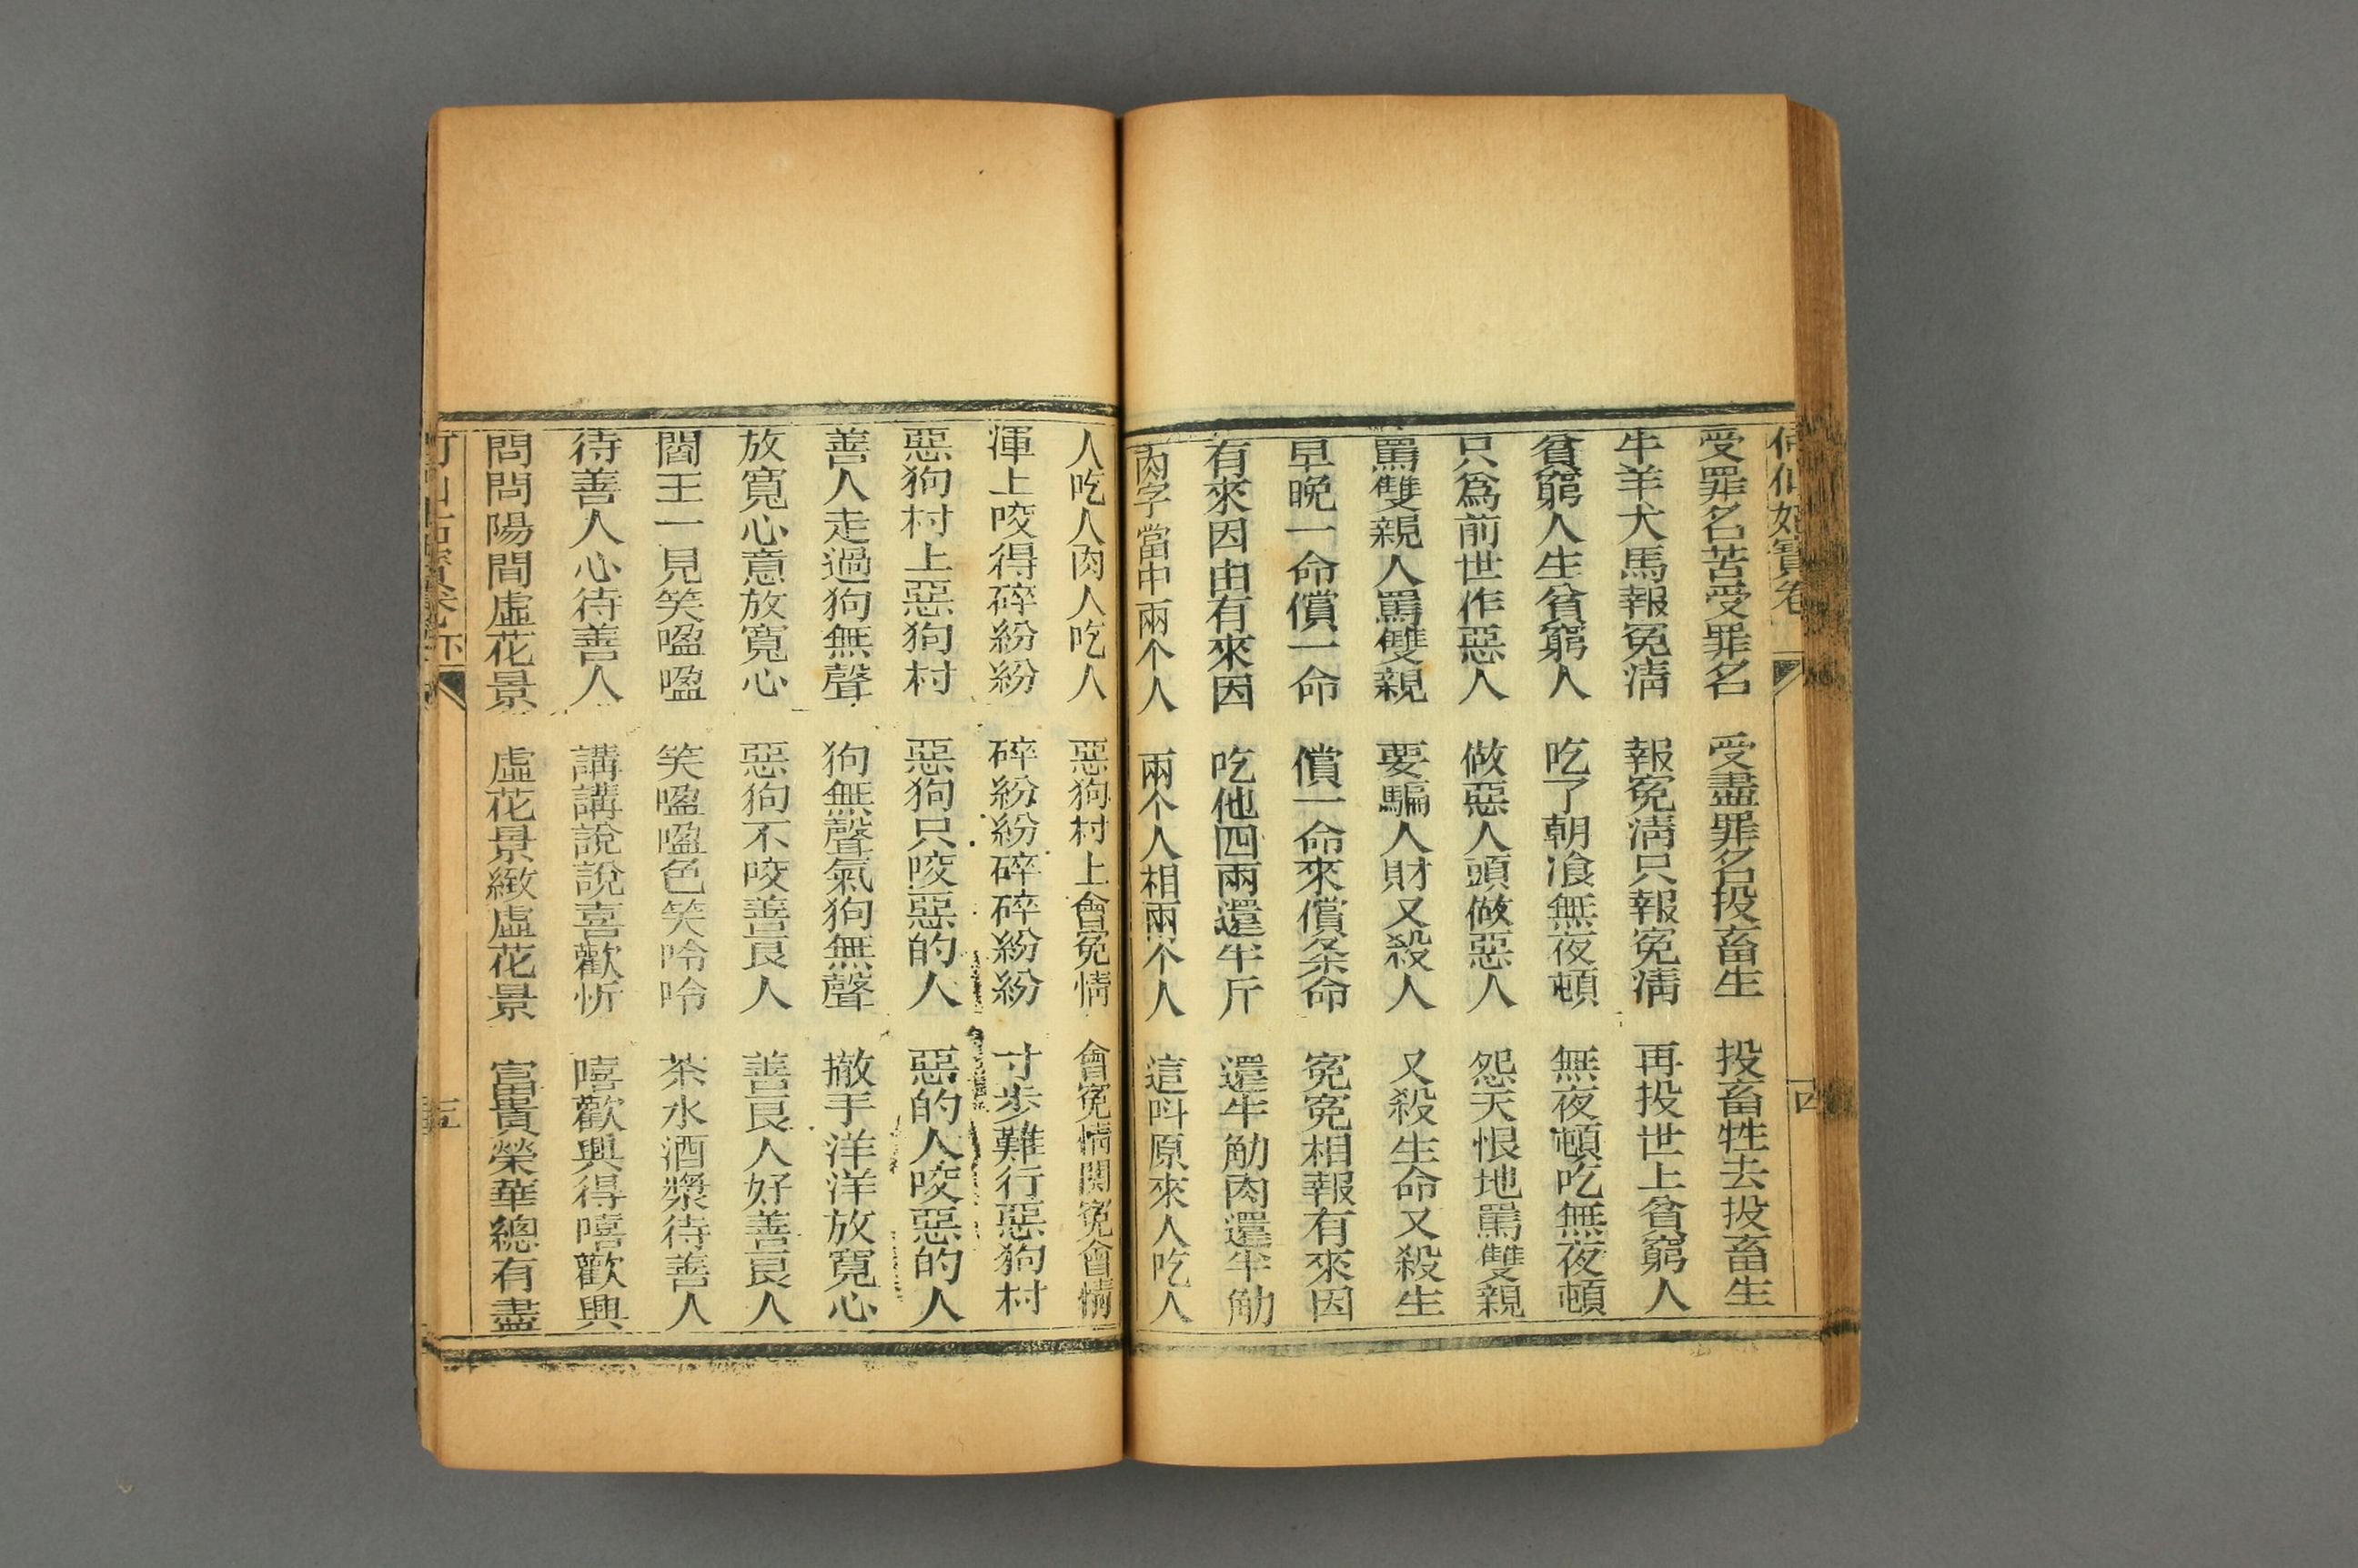 何仙姑寶卷
四
受罪名苦受罪名　受盡罪名投畜生　投畜牲去投畜生
牛羊犬馬報冤清　報冤清只報冤清　再投世上貧窮人
貧窮人生貧窮人　吃了朝飡無夜頓　無夜頓吃無夜頓
只爲前世作惡人　做惡人頭做惡人　怨天恨地罵雙親
罵雙親人罵雙親　要騙人財又殺人　又殺生命又殺生
早晚一命償一命　償一命來償条命　冤冤相報有來因
有來因由有來因　吃他四兩還半斤　還半觔肉還半觔
肉字當中兩个人　兩个人相兩个人　這呌原來人吃人
人吃人肉人吃人　惡狗村上會冤情　會冤情関冤會情
渾上咬得碎紛紛　碎紛紛碎碎紛紛　寸步難行惡狗村
惡狗村上惡狗村　惡狗只咬惡的人　惡的人咬惡的人
善人走過狗無聲　狗無聲氣狗無聲　撤手洋洋放寬心
放寬心意放寬心　惡狗不咬善良人　善良人好善良人
閻王一見笑嗌嗌　笑嗌嗌色笑呤呤　茶水酒漿待善人
待善人心待善人　講講說說喜歡忻　嘻歡興得嘻歡興
問問陽間虛花景　虛花景緻虛花景　富貴榮華總有盡
下
五